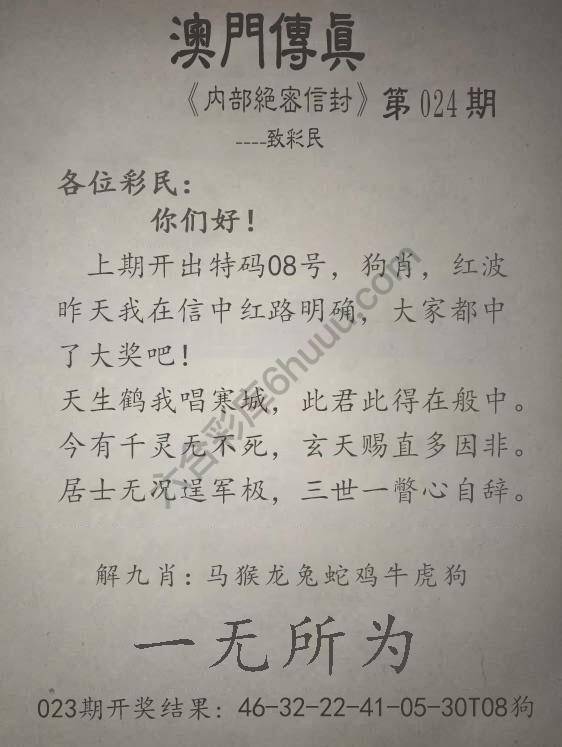 澳門傳眞
《内部絕密信封》第024期
----致彩民
各位彩民：
你们好！
上期开出特码08号，狗肖，红波
昨天我在信中红路明确，大家都中
了大奖吧！
天生鹤我唱寒城，此君此得在般中。
今有千灵无不死，玄天赐直多因非。
居士无况逞军极，三世一瞥心自辞。
解九肖：马猴龙兔蛇鸡牛虎狗
一无所为
023期开奖结果：46-32-22-41-05-30T08狗
六合彩库6huuu.com